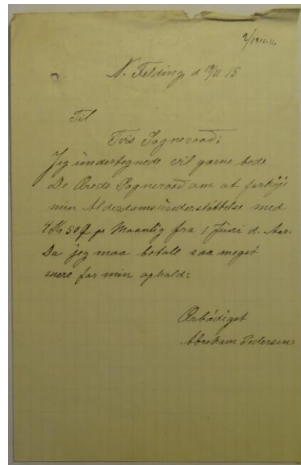 N. Felding d 19/11 15
Til
Tvis Sogneraad:
Jeg undertegnede vil gærne bede
De Ærede Sogneraad om at forhøje
min Alderdomsunderstøttelse med
4 Kr 50 Ø pr Maanlig fra 1 Juni d. Aar.
Da jeg maa betale saa meget
mere for min ophold:
Ærbødigst
Abraham Pedersen